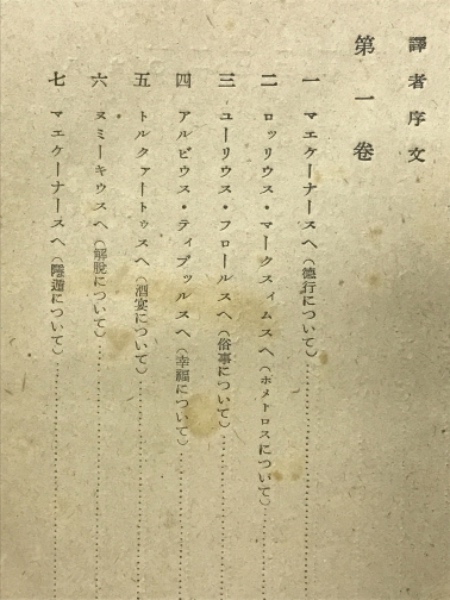 譯者序文
第一卷
一 マエケーナースへ(德行について)
二 ロッリウス・マークスィムスへ(ホメトロスについて)
三 ユーリウス・フロールスへ(俗事について)
四 アルビウス・ティブッルスへ(幸福について)
五 トルクァートゥスへ(酒宴について)
六 ヌミーキウスへ(解脫について)
七 マエケーナースへ(隱遁について)